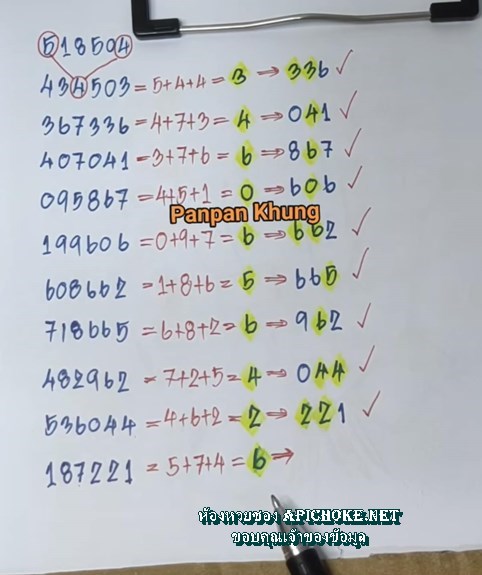 518504
434503 = 5+4+4 = 3 ⇒ 336 ✓
367336 = 4+7+3 = 4 ⇒ 041 ✓
407041 = 3+7+6 = 6 ⇒ 867 ✓
095867 = 4+5+1 = 0 ⇒ 606 ✓
Panpan Khung
199606 = 0+9+7 = 6 ⇒ 662 ✓
608662 = 1+8+6 = 5 ⇒ 665 ✓
718665 = 6+8+2 = 6 ⇒ 962 ✓
482962 = 7+2+5 = 4 ⇒ 044 ✓
536044 = 4+6+2 = 2 ⇒ 221 ✓
187221 = 5+7+4 = 6 ⇒
ห้องหวยซอง APICHOKE.NET
ขอบคุณเจ้าของข้อมูล